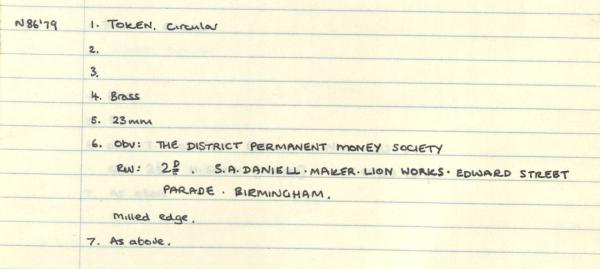 N86'79 1. TOKEN. Circular
2.
3.
4. Brass
5. 23mm
6. Obv: THE DISTRICT PERMANENT MONEY SOCIETY
Rev: 2D. S.A. DANIELL · MAKER · LION WORKS · EDWARD STREET
PARADE · BIRMINGHAM.
Milled edge.
7. As above.